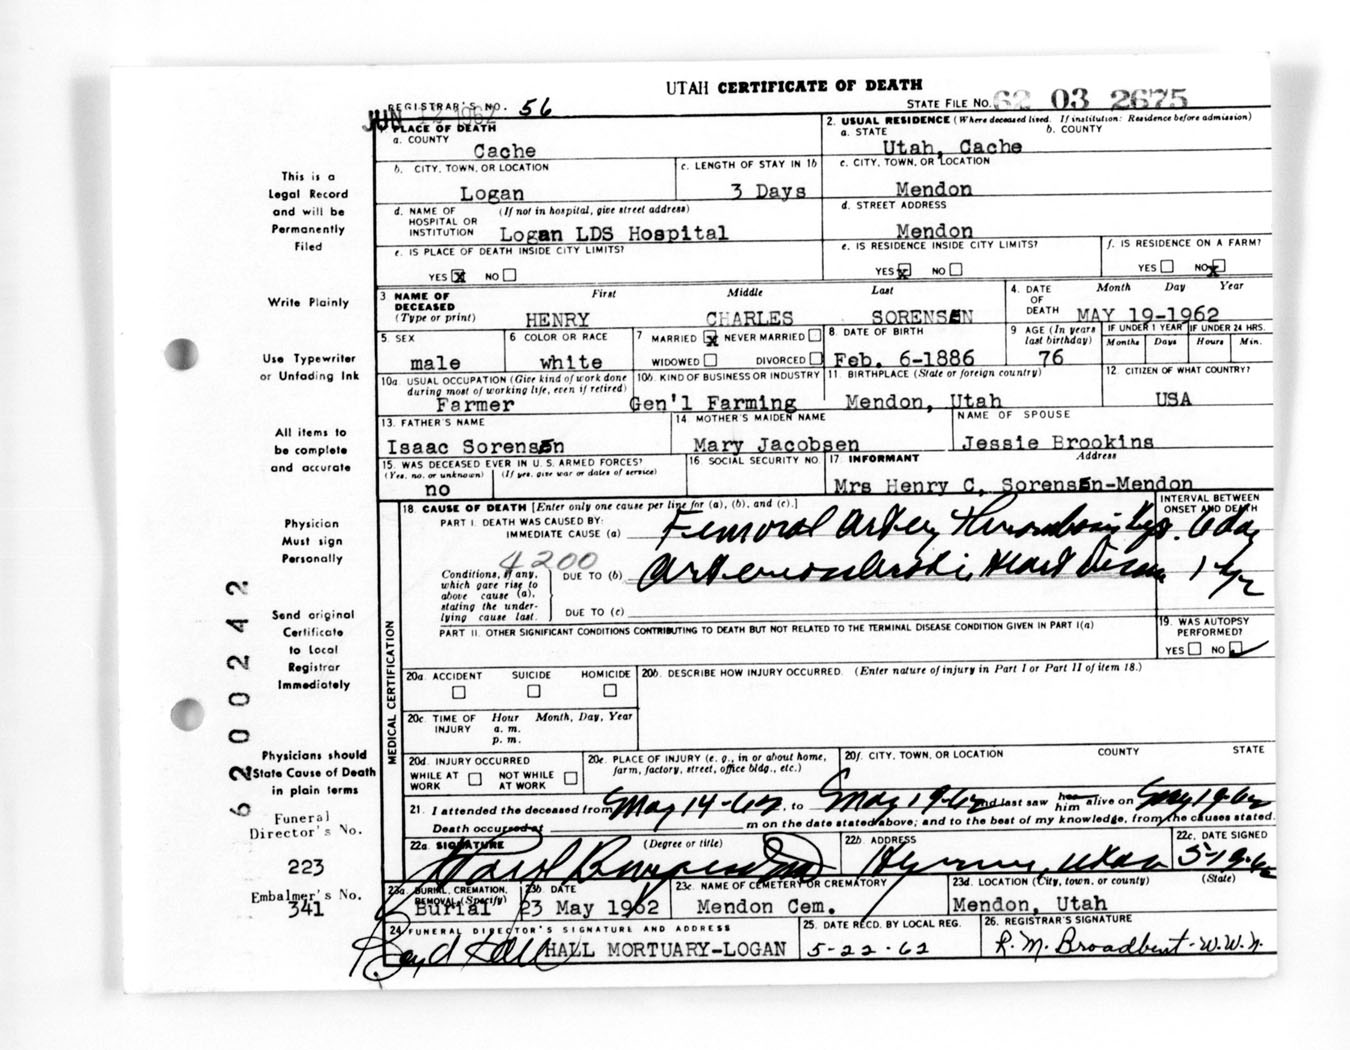 UTAH CERTIFICATE OF DEATH
REGISTRAR'S NO. 56
STATE FILE NO. 62 03 2675
JUN 12 1962
PLACE OF DEATH
a. COUNTY
Cache
2. USUAL RESIDENCE (Where deceased lived. If institution: Residence before admission)
a. STATE b. COUNTY
Utah, Cache
b. CITY, TOWN, OR LOCATION
Logan
c. LENGTH OF STAY IN 1b
3 Days
c. CITY, TOWN, OR LOCATION
Mendon
d. NAME OF HOSPITAL OR INSTITUTION (If not in hospital, give street address)
Logan LDS Hospital
d. STREET ADDRESS
Mendon
e. IS PLACE OF DEATH INSIDE CITY LIMITS?
YES x NO
e. IS RESIDENCE INSIDE CITY LIMITS?
YES x NO
f. IS RESIDENCE ON A FARM?
YES NO x
3 NAME OF DECEASED (Type or print)
First Middle Last
HENRY CHARLES SORENSEN
4. DATE OF DEATH Month Day Year
MAY 19-1962
5. SEX
male
6 COLOR OR RACE
white
7 MARRIED x NEVER MARRIED
WIDOWED DIVORCED
8. DATE OF BIRTH
Feb. 6-1886
9 AGE (In years last birthday)
76
IF UNDER 1 YEAR IF UNDER 24 HRS.
Months Days Hours Min.
10a. USUAL OCCUPATION (Give kind of work done during most of working life, even if retired)
Farmer
10b. KIND OF BUSINESS OR INDUSTRY
Gen'l Farming
11. BIRTHPLACE (State or foreign country)
Mendon, Utah
12. CITIZEN OF WHAT COUNTRY?
USA
13. FATHER'S NAME
Isaac Sorensen
14 MOTHER'S MAIDEN NAME
Mary Jacobsen
NAME OF SPOUSE
Jessie Brookins
15. WAS DECEASED EVER IN U.S. ARMED FORCES?
(Yes, no, or unknown) (If yes, give war or dates of service)
no
16 SOCIAL SECURITY NO.
17 INFORMANT Address
Mrs Henry C. Sorensen-Mendon
MEDICAL CERTIFICATION
18. CAUSE OF DEATH [Enter only one cause per line for (a), (b), and (c).]
INTERVAL BETWEEN ONSET AND DEATH
PART I. DEATH WAS CAUSED BY:
IMMEDIATE CAUSE (a) Femoral Artery Thrombosis 6 day
4200
Conditions, if any, which gave rise to above cause (a), stating the underlying cause last.
DUE TO (b) Arteriosclerotic Heart Disease 1 yr
DUE TO (c)
PART II. OTHER SIGNIFICANT CONDITIONS CONTRIBUTING TO DEATH BUT NOT RELATED TO THE TERMINAL DISEASE CONDITION GIVEN IN PART I(a)
19. WAS AUTOPSY PERFORMED?
YES NO ✓
20a. ACCIDENT SUICIDE HOMICIDE
20b. DESCRIBE HOW INJURY OCCURRED. (Enter nature of injury in Part I or Part II of item 18.)
20c. TIME OF INJURY Hour Month, Day, Year
a. m.
p. m.
20d. INJURY OCCURRED
WHILE AT WORK NOT WHILE AT WORK
20e. PLACE OF INJURY (e. g., in or about home, farm, factory, street, office bldg., etc.)
20f. CITY, TOWN, OR LOCATION COUNTY STATE
21. I attended the deceased from May 14-62, to May 19 62 and last saw her him alive on May 19-62
Death occurred at m on the date stated above; and to the best of my knowledge, from the causes stated.
22a. SIGNATURE (Degree or title)
22b. ADDRESS
Hyrum, Utah
22c. DATE SIGNED
5-19-62
23a. BURIAL, CREMATION, REMOVAL (Specify)
Burial
23b. DATE
23 May 1962
23c. NAME OF CEMETERY OR CREMATORY
Mendon Cem.
23d. LOCATION (City, town, or county) (State)
Mendon, Utah
24 FUNERAL DIRECTOR'S SIGNATURE AND ADDRESS
Boyd Hall HALL MORTUARY-LOGAN
25. DATE RECD. BY LOCAL REG.
5-22-62
26. REGISTRAR'S SIGNATURE
R. M. Broadbent-W.W.N.
This is a
Legal Record
and will be
Permanently
Filed
Write Plainly
Use Typewriter
or Unfading Ink
All items to
be complete
and accurate
Physician
Must sign
Personally
Send original
Certificate
to Local
Registrar
Immediately
Physicians should
State Cause of Death
in plain terms
Funeral
Director's No.
223
Embalmer's No.
341
62000242